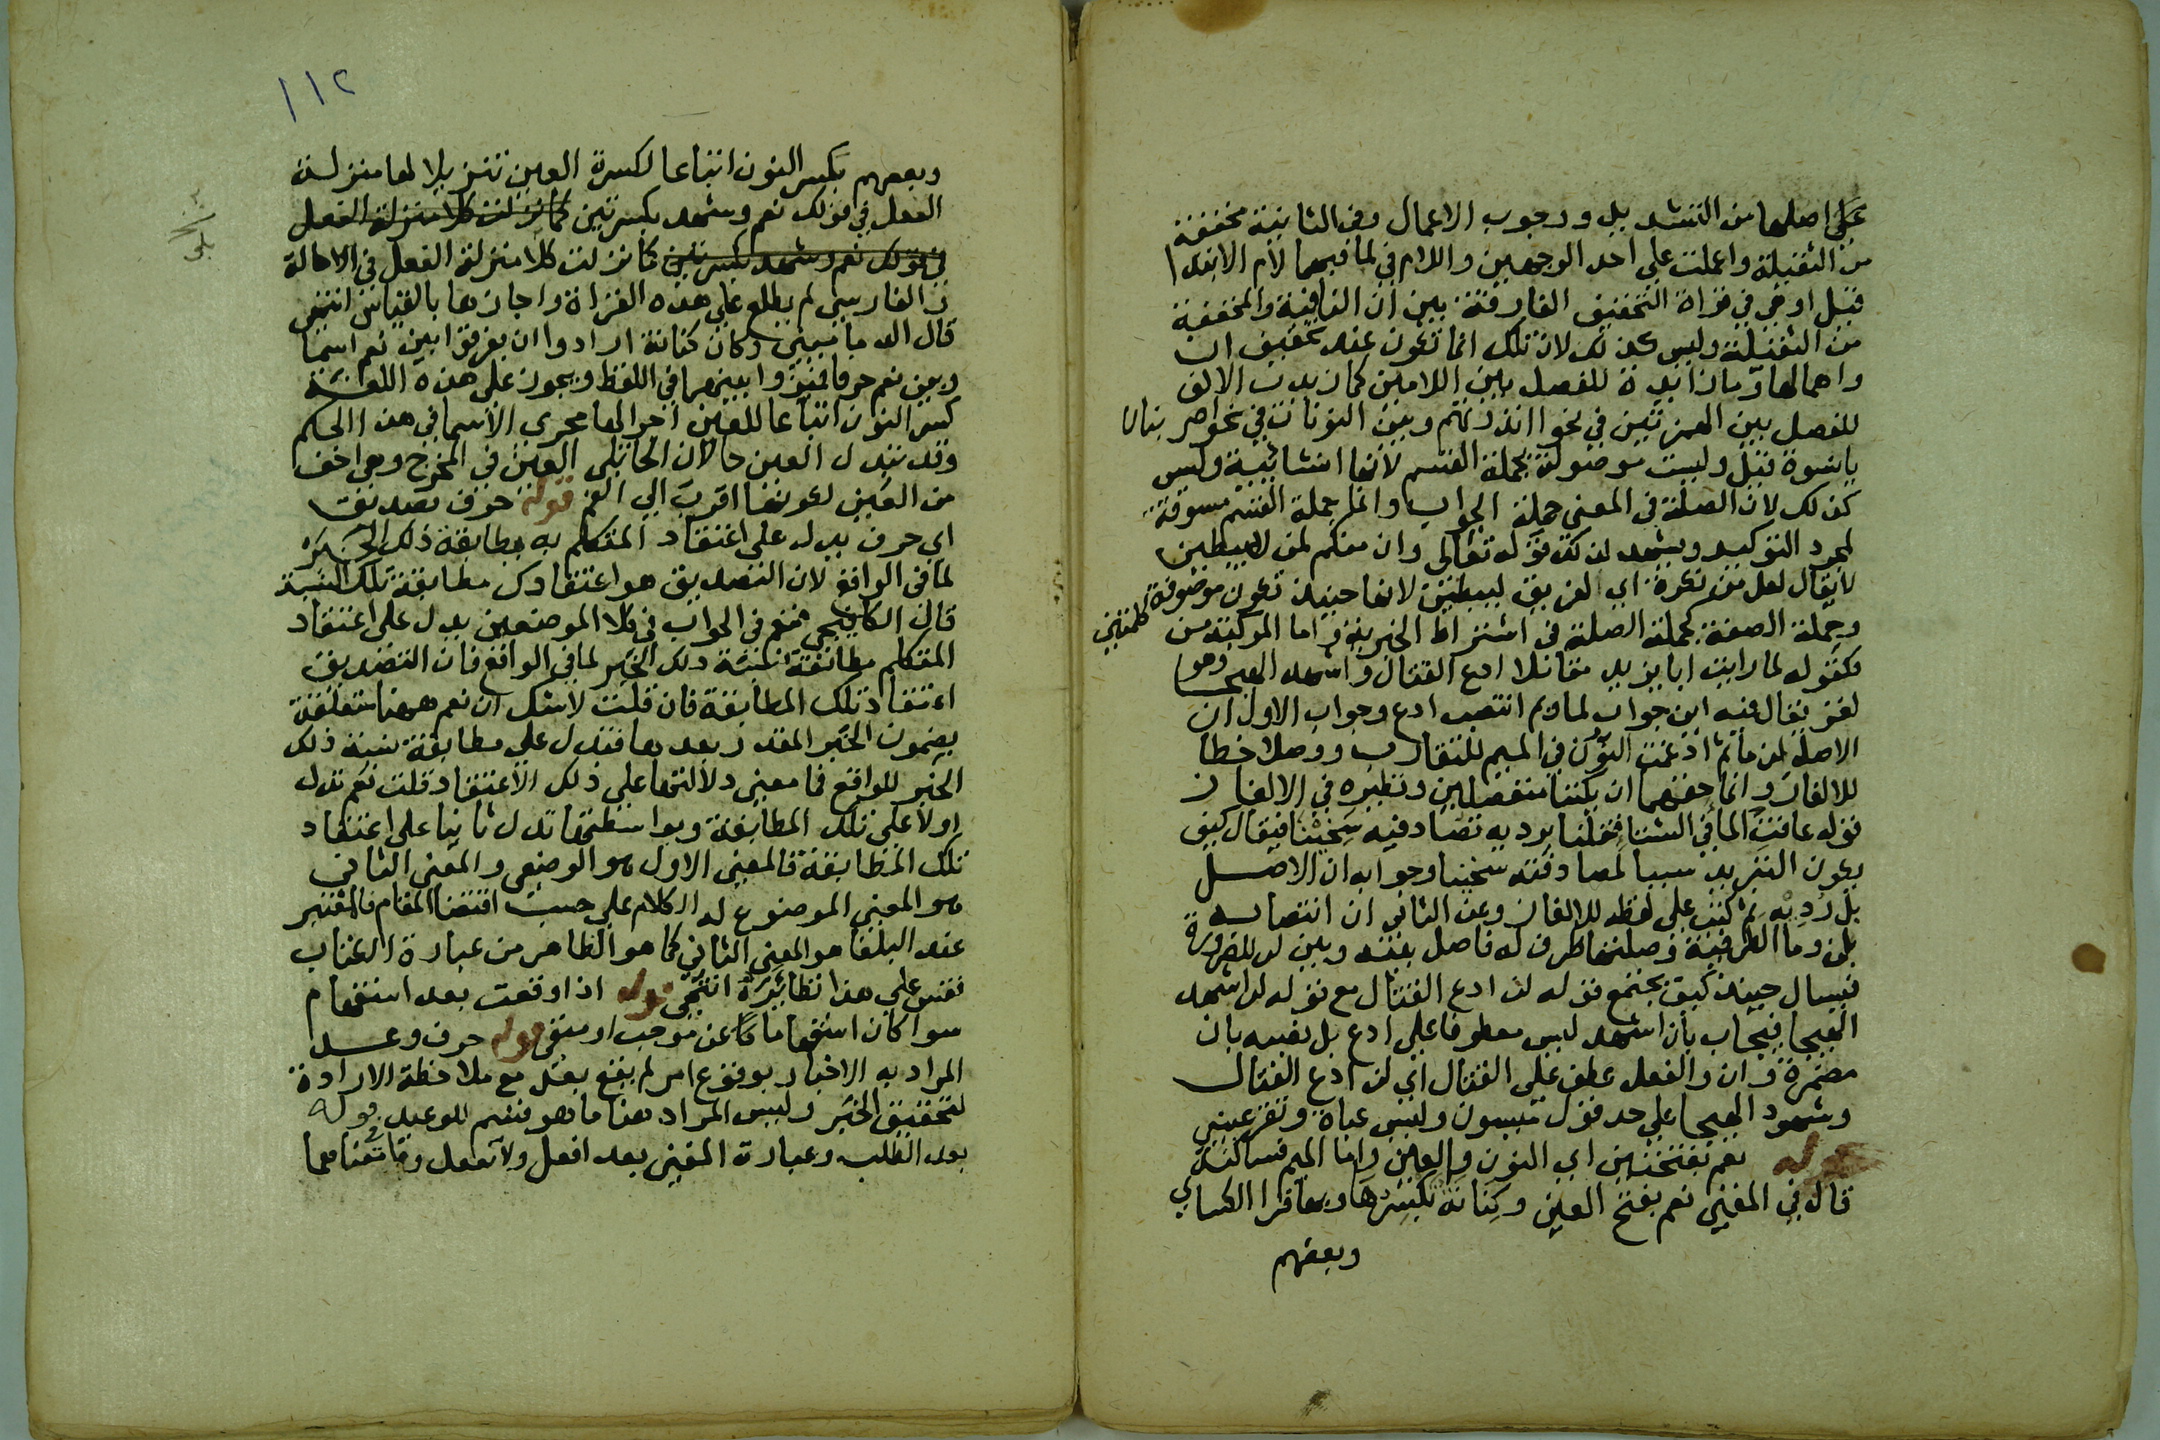 على اصلها من التشديد ووجوب الاعمال وفى الثانية مخففة
من الثقيلة واعملت على احد الوجهين واللام في لما فيهما لام الابتدا
قيل او هي في قراة التخفيف الفارقة بين ان النافية والمخففة
من الثقيلة وليس كذلك لان تلك انما تكون عند تخفيف ان
واهمالها وما زايدة للفصل بين اللامين كما زيدت الالف
للفصل بين الهمزتين في نحو اانذرتهم وبين النونات في نحو اضربنان
يا نسوة قيل وليست موصولة بجملة القسم لانها انشائية وليس
كذلك لان الصلة في المعنى جملة الجواب وانما جملة القسم مسوقة
لمجرد التوكيد ويشهد لذلك قوله تعالى وان منكم لمن ليبطين
لا يقال لعل من نكرة اي لفريق ليبطين لانها حينيذ تكون موصوفة
وجملة الصفة كجملة الصلة في اشتراط الخبرية واما المركبة من كلمتين
فكقوله لما رايت ابا يزيد مقاتلا ادع القتال واشهد الهيجا وهو
لغز يقال فيه اين جواب لما وبم انتصب ادع وجواب الاول ان
الاصل لن ما ثم ادغمت النون في الميم للتقارب ووصلا خطا
للالغاز وانما حقهما ان يكتبا منفصلين ونظيره في الالغاز
قوله عافت الما في الشتا فقلنا برديه تصادفيه سخينا فيقال كيف
يكون التبريد سببا لمصادفته سخينا وجوابه ان الاصل
بل رديه ثم كتب على لفظه للالغاز وعن الثاني ان انتصابه
بلن وما الظرفية وصلتها ظرف له فاصل بينه وبين لن للضرورة
فيسال حينيذ كيف يجتمع قوله لن ادع القتال مع قوله لن اشهد
الهيجا فيجاب بان اشهد ليس معطوفا على ادع بل نصبه بان
مضمرة وان والفعل عطف على القتال اي لن ادع القتال
وشهود الهيجا على حد قول ميسون ولبس عباة وتقر عيني
قوله نعم بفتحتين اي النون والعين واما الميم فساكنة
قال في المغني نعم بفتح العين وكنانة تكسرها وبها قرا الكساي
وبعضهم
١١٢
وبعضهم بكسر النون اتباعا لكسرة العين تنزيلا لها منزلة
الفعل في قولك نعم وشهد بكسرتين كما نزلت كلا منزلة الفعل
في قولك نعم وشهد بكسرتين كما نزلت كلا منزلة الفعل في الامالة
والفارسي لم يطلع على هذه القراة واجازها بالقياس انتهى
قال الدماميني وكان كنانة ارادوا ان يفرقوا بين نعم اسما
وبين نعم حرفا فميزوا بينهما في اللفظ ويجوز على هذه اللغة
كسر النون اتباعا للعين اجرا لها مجرى الاسما في هذا الحكم
وقد تبدل العين حا لان الحا تلي العين في المخرج وهي اخف
من العين لكونها اقرب الى الفم قوله حرف تصديق
اي حرف يدل على اعتقاد المتكلم به مطابقة ذلك الخبر
لما في الواقع لان التصديق هو اعتقادك مطابقة تلك النسبة
قال الكافيجي فنعم في الجواب في كلا الموضعين يدل على اعتقاد
المتكلم مطابقة نسبة ذلك الخبر لما في الواقع فان التصديق
اعتقاد تلك المطابقة فان قلت لا شك ان نعم ههنا متعلقة
بمضمون الخبر المقدر بعدها فتدل على مطابقة نسبة ذلك
الخبر للواقع فما معنى دلالتها على ذلك الاعتقاد قلت نعم تدل
اولا على تلك المطابقة وبواسطتها تدل ثانيا على اعتقاد
تلك المطابقة فالمعنى الاول هو الوضعي والمعنى الثاني
هو المعنى الموضوع له الكلام على حسب اقتضا المقام فالمعتبر
عند البلغا هو المعنى الثاني كما هو الظاهر من عبارة الكتاب
فقس على هذا نظايره انتهى قوله اذا وقعت بعد استفهام
سوا كان استفهاما كا عن موجب او منفي قوله حرف وعد
المراد به الاخبار بوقوع امر لم يقع بعد مع ملاحظة الارادة
لتحقيق الخبر وليس المراد هنا ما هو قسم للوعيد قوله
بعد الطلب وعبارة المغني بعد افعل ولا تفعل وما في معناهما